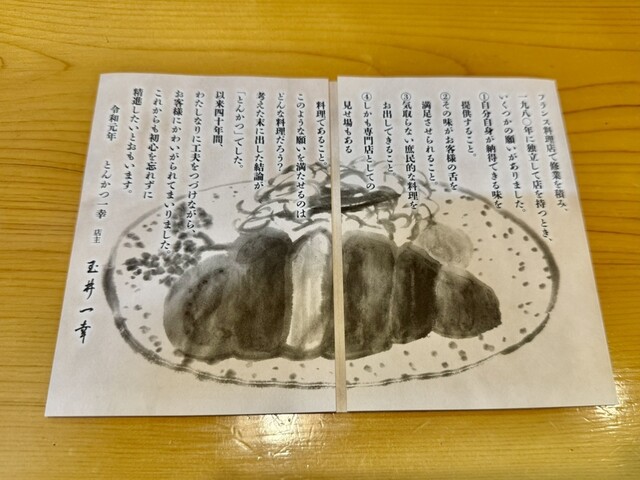 フランス料理店で修業を積み、
一九八〇年に独立して店を持つとき、
いくつかの願いがありました。
①自分自身が納得できる味を
提供すること、
②その味がお客様の舌を
満足させられること、
③気取らない庶民的な料理を
お出しできること、
④しかも専門店としての
見せ場もある
料理であること。
このような願いを満たせるのは
どんな料理だろう？
考えた末に出した結論が
「とんかつ」でした。
以来四十年間、
わたしなりに工夫をつづけながら、
お客様にかわいがられてまいりました。
これからも初心を忘れずに
精進したいとおもいます。
令和元年
とんかつ一幸 店主
玉井一幸